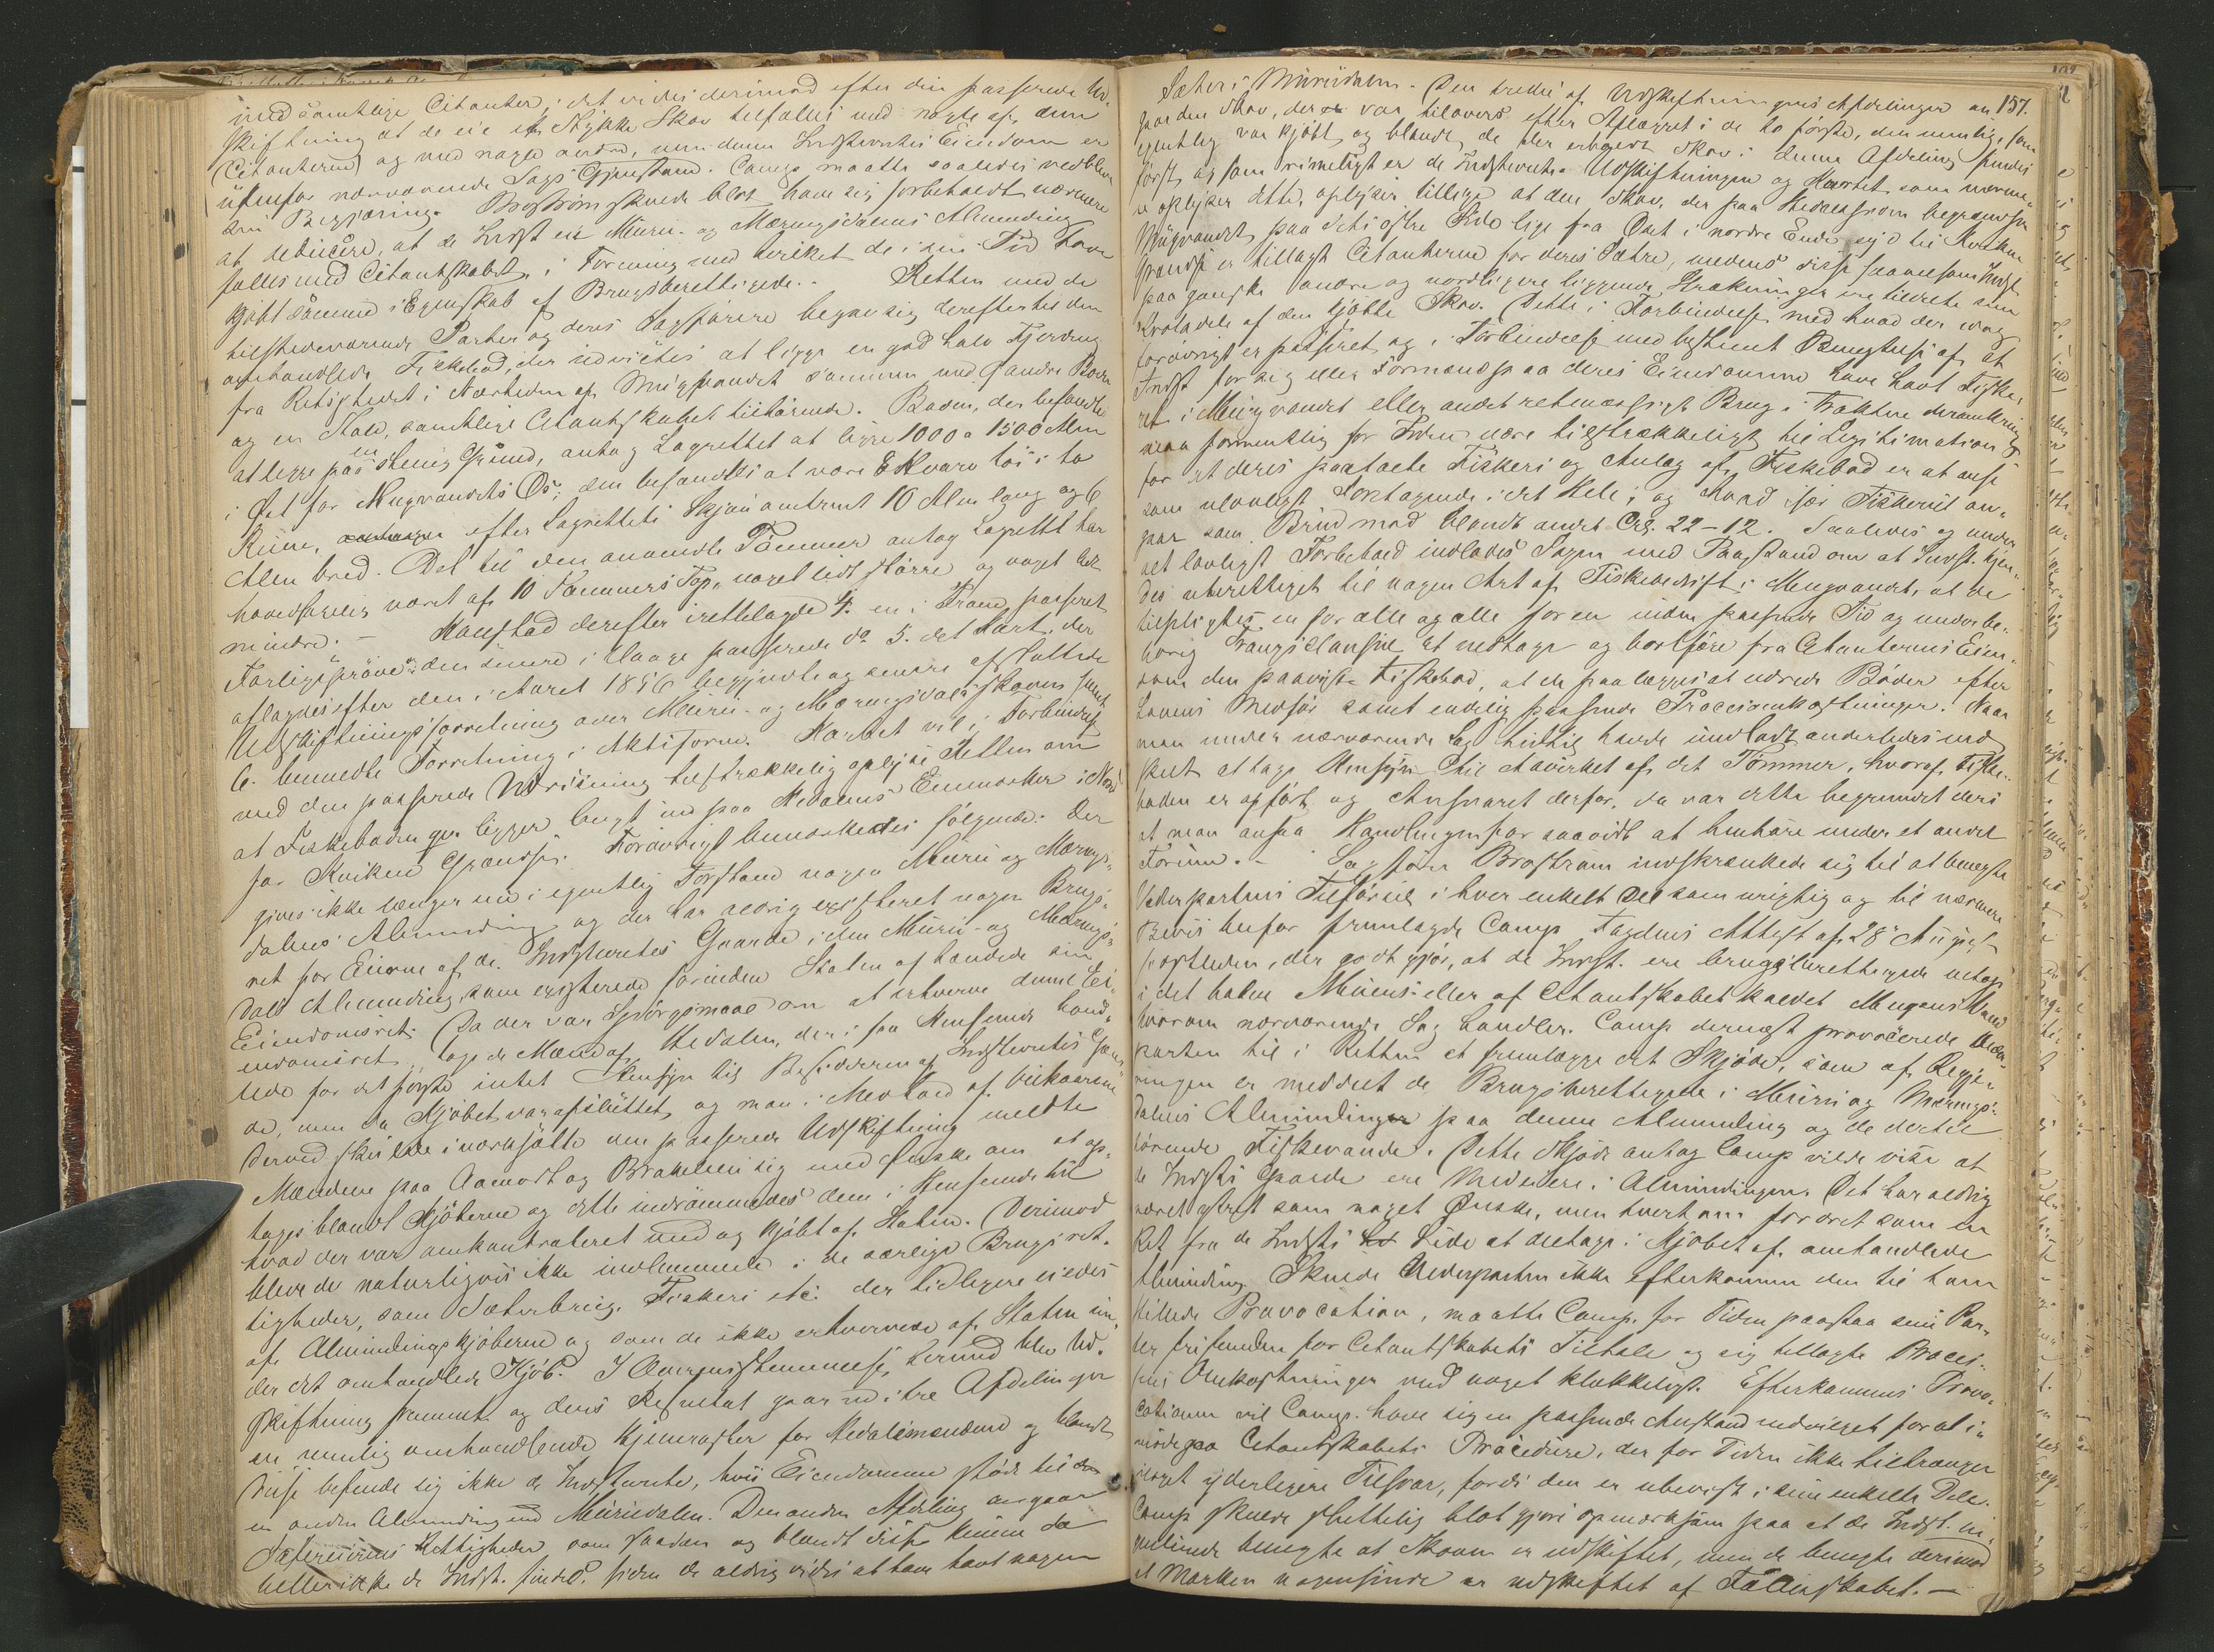 med samtlige Citanter; det vides derimod efter den passerede Ud-
skiftning at de eie et Stykke Skov tilfælles med nogle af dem
(Citanterne) og med nogle andre, men denne Indstevntes Eiendom er
udenfor nærværende Sags Gjenstand. Camp maatte saaledes vedblive
sin Begjæring. Broström skulde blot have sig forbeholdt nærmere
at deducere, at de Indst eie Muru- og Mærrengsdalens Almending
fælles med Citantskabet i Forening med hvilket de i sin Tid have
kjöbt samme i Egenskab af Brugsberettigede. Retten med de
tilstedeværende Parter og deres Sagförere begav sig derefter til den
omhandlede Fiskebod, der udvistes at ligge en god halv Fjerding
fra Retsstedet i Nærheden af Mugvandet sammen med 3 andre Boder
og en Stald, samtlige Citantskabet tilhörende. Boden, der befandtes
at ligge paa en stenig Grund, antog Lagrettet at ligge 1000 a 1500 Alen
i Öst for Mugvandets Os; den befandtes at være Evarv höi i to
Rum, efter Lagrettets Skjön omtrent 10 Alen lang og 6
Alen bred. Det til den anvendte Tömmer antog Lagrettet har
hovedsagelig været af 10 Tommers Top, noget lidt större og noget lidt
mindre. - Kolstad derefter irettelagde 4: en i Fron passeret
Forligspröve, den senere i Vaage passerede do 5. det Kart, der
aflagdes efter den i Aaret 1856 begyndte og senere afsluttede
Udskiftningsforretning over Muru- og Mærrengsdalsskoven samt
6. bemeldte Forretning i Aktiform. Kartet vil i Forbindelse
med den passerede Udvisning tilstrækkelig oplyse Retten om
at Fiskeboden qv. ligger langt ind paa Hedalens Eiermarker i Nord
for Kvikne Grændse. Forövrigt bemærkedes fölgende: Der
gives ikke længer nu i egentlig Forstand nogen Muru og Mærrengs-
dalens Almending og der har aldrig existeret nogen Brugs-
ret for Eierne af de Indstevntes Gaarde i den Muru- og Mærrengs-
dals Almending, som existerede forinden Staten afhændede sin
Eiendomsret. Da der var Spörgsmaal om at erhverve denne Ei-
endomsret, toge de Mænd af Hedalen, der i saa Henseende hand-
lede for det förste intet Hensyn til Besidderen af Indstevntes Gaar-
de, men da Kjöbet var afsluttet, og man i Medhold af Vilkaarene
derved skulde iværksætte den passerede Udskiftning meldte
Mændene paa Aamodt og Brakelien sig med Önske om at op-
tages blandt Kjöberne og dette indrömmedes dem i Henseende til
hvad der var omkontraheret med og kjöbt af Staten. Derimod
bleve de naturligvis ikke indlemmede i de særlige Brugsret-
tigheder, som Sæterbrug, Fiskeri etc. der tidligere eiedes
af Almindingskjöberne og som de ikke erhvervede af Staten un-
der det omhandlede Kjöb. I Overensstemmelse hermed blev Ud-
skiftning fremmet og dens Resultat gaar ud i tre Afdelinger
en nemlig omhandlende Hjemraster for Hedalsmændene og blandt
disse befinde sig ikke de Indstevnte, hvis Eiendomme stöde til den
en anden Alminding end Murudalen. Den anden Afdeling angaar
Sætereiernes Rettigheder som saadan og blandt disse kunne da
heller ikke de Indst. findes, siden de aldrig vides at have havt nogen
Sæter i Murudalen. Den tredie af Udskiftningens Afdelinger an- 157.
gaar den Skov, der var tilovers efter Aflægget i de to förste, den nemlig, som
egentlig var kjöbt, og blandt de der erholdt Skov i denne Afdeling findes
först og som rimeligt er de Indstevnte. Udskiftningen og Kartet som nærme-
re oplyser dette, oplyser tillige at den Skov, der paa Hedalssiden begrændser
Mugvandet paa dets östre Side lige fra Oset i nordre Ende syd til Kvikne
Grændse er tillagt Citanterne for deres Sætre, medens disse saavelsom Indst
paa ganske andre og nordligere liggende Strækninger ere tildelte sin
Kvotadel af den kjöbte Skov. Dette i Forbindelse med hvad der idag
forövrigt er passeret, og i Forbindelse med bestemt Benegtelse af at
Indst for sig eller Formænds paa deres Eiendomme have havt Fiske-
ret i Mugvandet eller andet retmæssigt Brug i Trakterne deromkring
maa formentlig for Tiden være tilstrækkeligt til Legitimation
for at deres paatalte Fiskeri og Anlæg af Fiskebod er at anse
som ulovligt Foretagende i det Hele; og hvad især Fiskeriet an-
gaar som Brud mod blandt andet Crl. 22-12. Saaledes og under
alt lovligt Forbehold indlodes Sagen med Paastand om at Indst. kjen-
des uberettiget til nogen Art af Fiskebedrift i Mugvandet, at de
tilpligtes en for alle og alle for en inden passende Tid og under be-
hörig Tvangsclausul at nedtage og bortföre fra Citanternes Eien-
dom den paaviste Fiskebod, at de paalægges at udrede Böder efter
Lovens Medför samt endelig passende Procesomkostninger. Naar
man under nærværende Sag hidtil havde undladt anderledes end
skeet at tage Hensyn til Advirket af det Tömmer, hvoraf Fiske-
boden er opfört og Ansvaret derfor, da var dette begrundet deri
at man ansaa Handlingen for saavidt at henhöre under et andet
Forum. - Sagförer Broström indskrænkede sig til at benegte
Vederpartens Tilförsel i hver enkelt Del som urigtig og til nærmere
Bevis herfor fremlagde Camp Fogdens Attest af 28de August
sidstleden, der godtgjör, at de Indst. ere brugsberettigede netop
i det baade Muens eller af Citantskabet kaldet Mugens Vand
hvorom nærværende Sag handler. Camp dernæst provocerede Veder-
parten til i Retten at fremlægge det Skjöde, som af Regje-
ringen er meddelt de Brugsberettigede i Muru og Mærrengs-
dalens Alminding paa denne Alminding og de dertil
hörende Fiskevande. Dette Skjöde antog Camp vilde vise at
de Indsts Gaarde ere Medeiere i Almindingen. Det har aldrig
været ytret som noget Önske, men tvertom fordret som en
Ret fra de Indsts Side at deltage i Kjöbet af omhandlede
Alminding. Skulde Vederparten ikke efterkomme den til ham
stillede Provocation, maatte Camp. for Tiden paastaa sine Par-
ter frifundne for Citantskabets Tiltale og sig tillagte Proces-
sens Omkostninger med noget klækkeligt. Efterkommes Provo-
cationen vil Camp. have sig en passende Anstand meddelt for at i-
mödegaa Citantskabets Procedure, der for Tiden ikke tiltrænger
noget yderligere Tilsvar, fordi den er ubevist i sine enkelte Dele.
Camp skulde sluttelig blot gjöre opmærksom paa at de Indst. in-
genlunde benegte at Skoven er udskiftet, men de benegte derimod
at Marken nogensinde er udskiftet af Fællesskabet. -